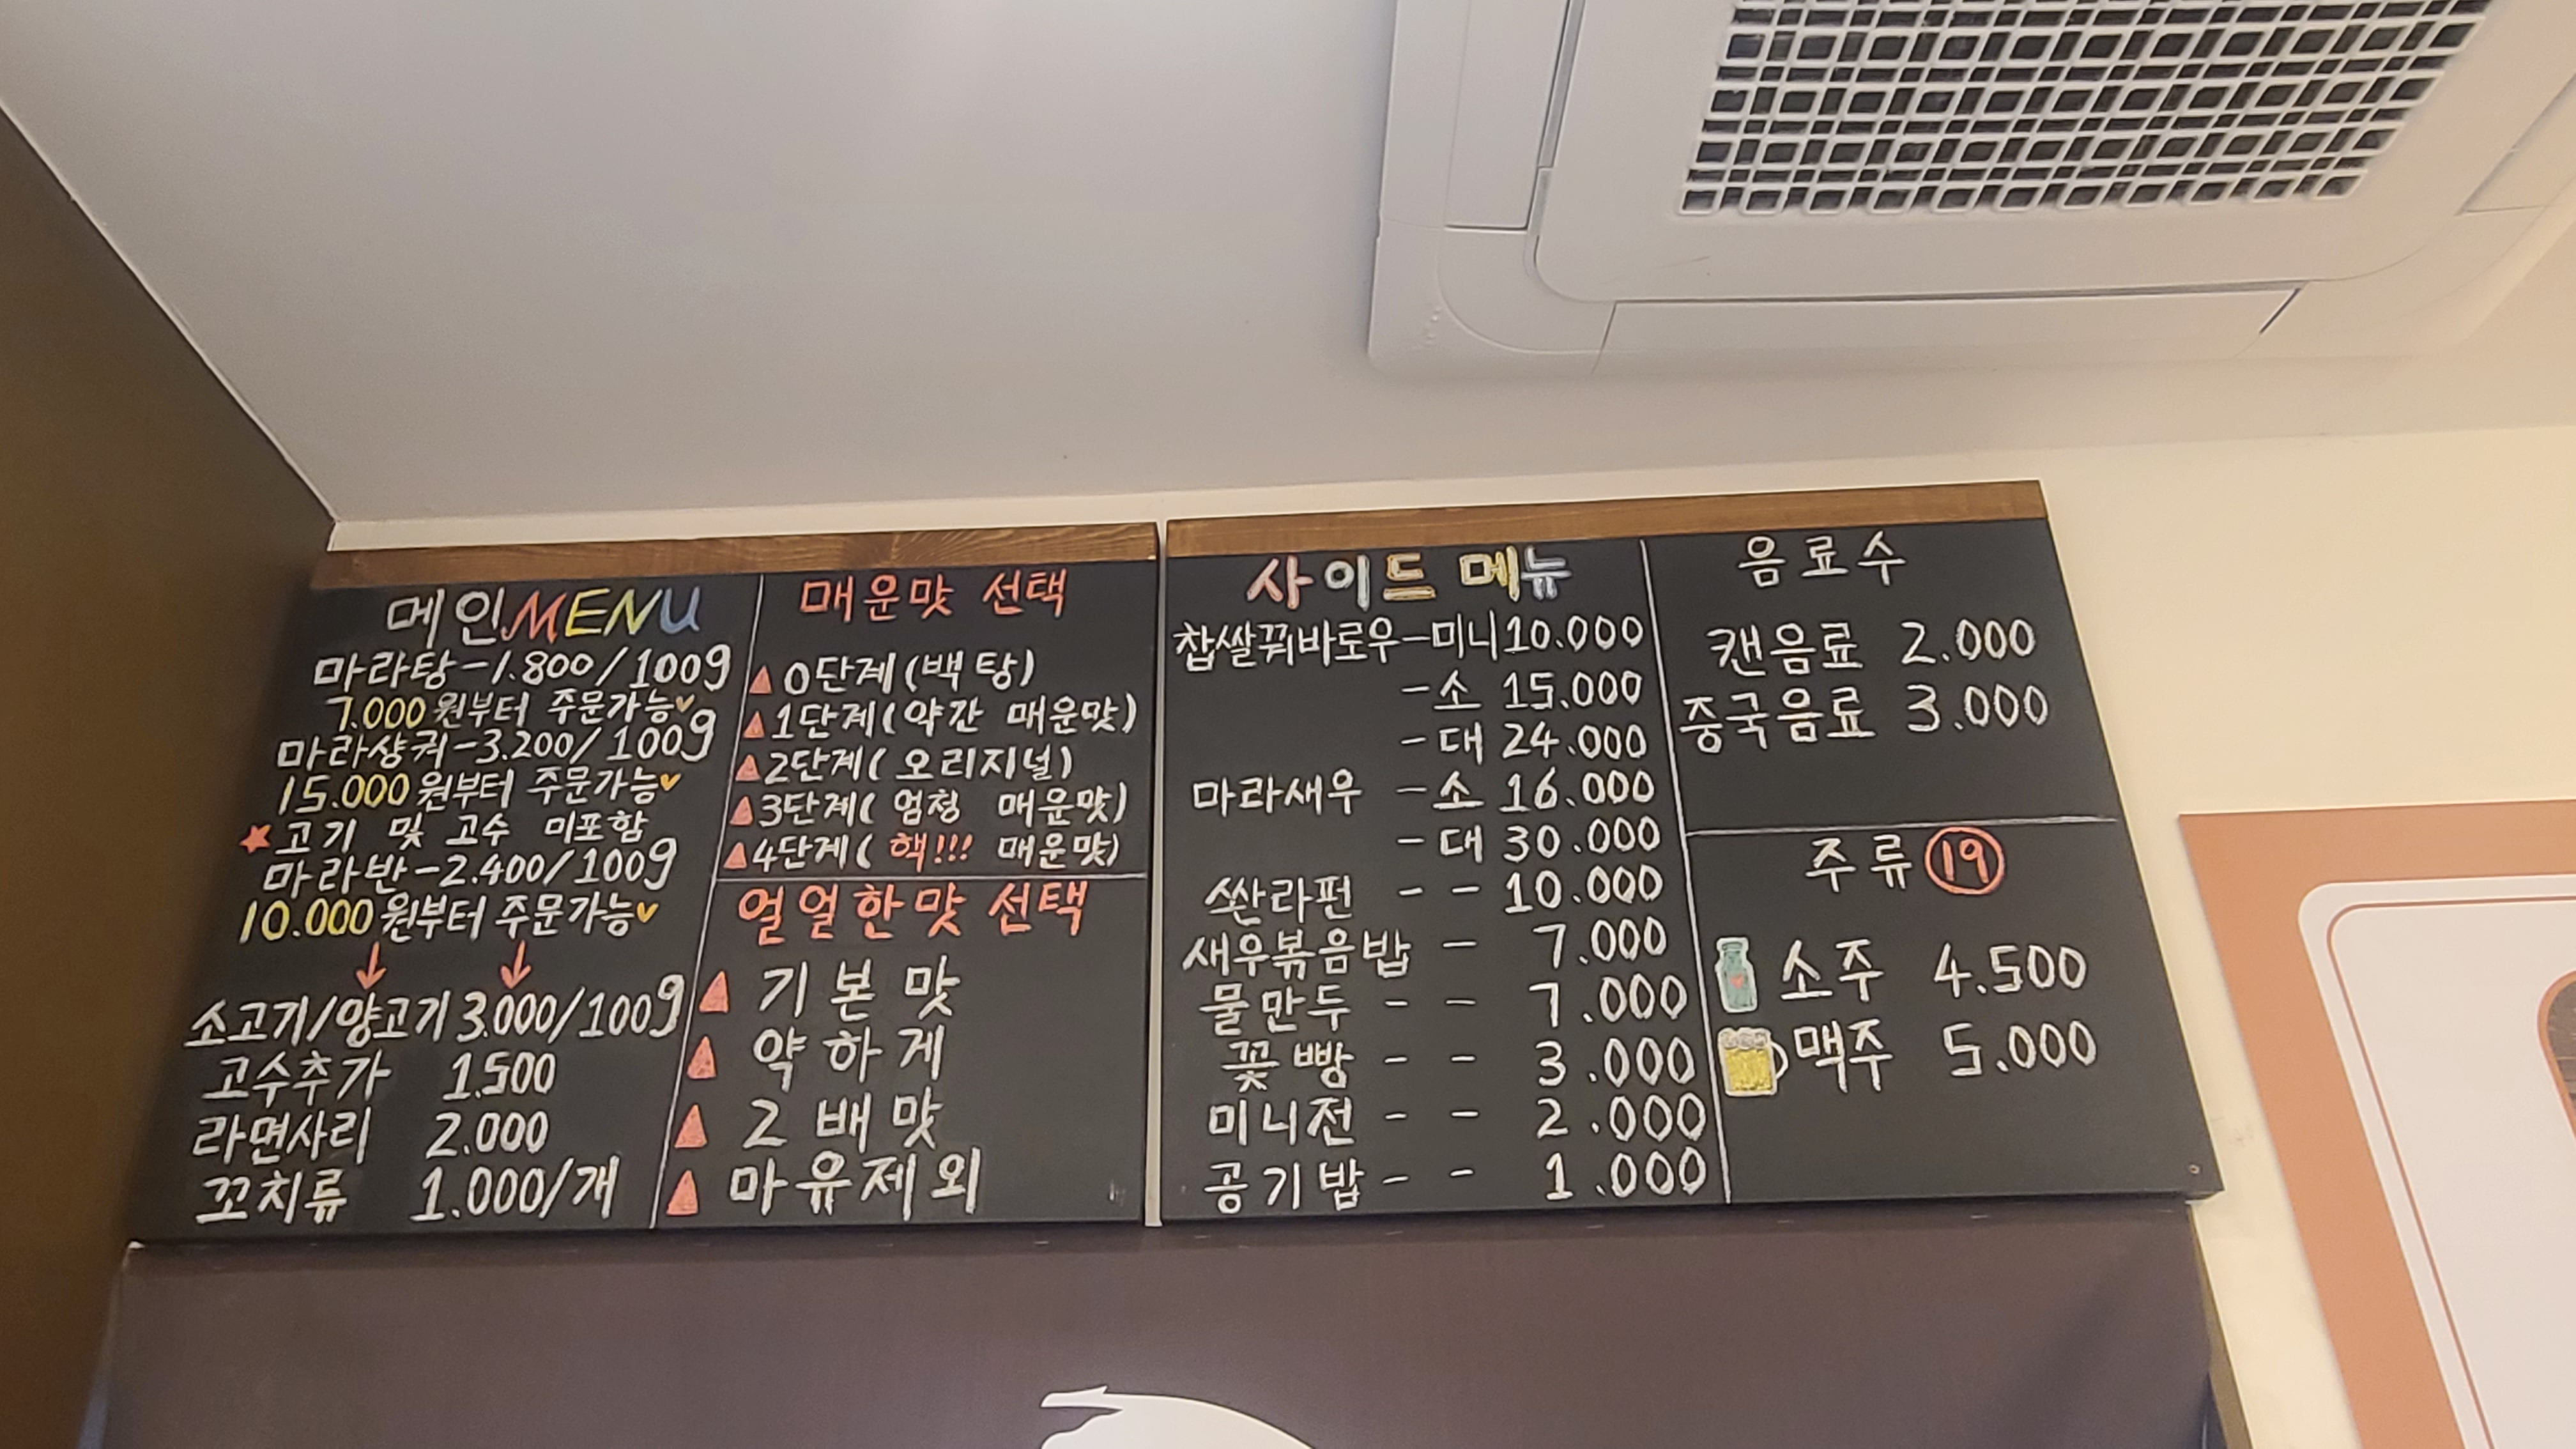 메인MENU
마라탕-1.800/100g
7.000원부터 주문가능
마라샹궈-3.200/100g
15.000원부터 주문가능
고기 및 고수 미포함
마라반-2.400/100g
10.000원부터 주문가능
소고기/양고기 3.000/100g
고수추가 1.500
라면사리 2.000
꼬치류 1.000/개
매운맛 선택
0단계(백탕)
1단계(약간 매운맛)
2단계(오리지널)
3단계(엄청 매운맛)
4단계(핵!!! 매운맛)
얼얼한맛 선택
기본맛
약하게
2배맛
마유제외
사이드 메뉴
찹쌀꿔바로우-미니10.000
-소 15.000
-대 24.000
마라새우 -소 16.000
-대 30.000
쏸라펀 - - 10.000
새우볶음밥 - 7.000
물만두 - - 7.000
꽃빵 - - 3.000
미니전 - - 2.000
공기밥 - - 1.000
음료수
캔음료 2.000
중국음료 3.000
주류 19
소주 4.500
맥주 5.000